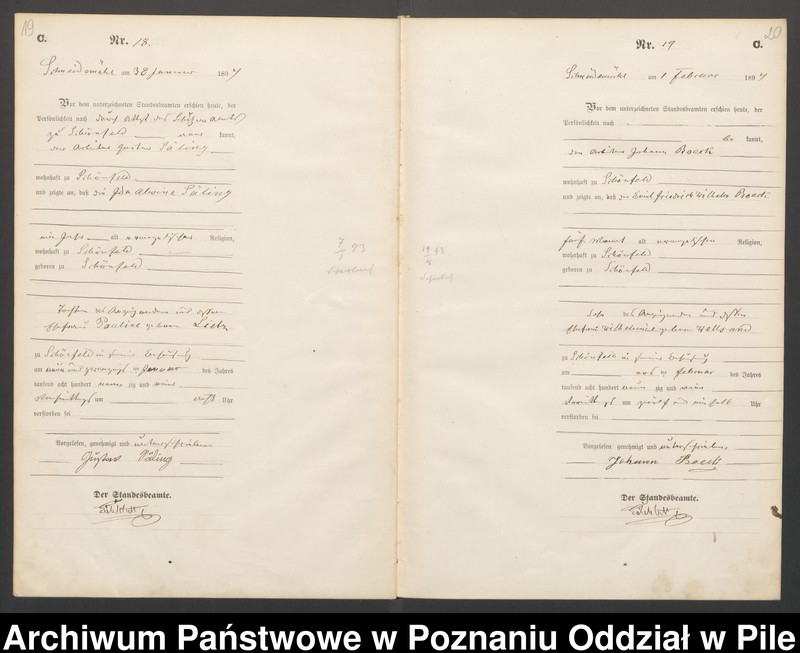 19
C.
Nr. 18.
Schneidemühl am 30 Januar 1894
Vor dem unterzeichneten Standesbeamten erschien heute, der
Persönlichkeit nach durch Attest des
zu Schönfeld kannt,
der Arbeiter Gustav Säling
wohnhaft zu Schönfeld
und zeigte an, daß die Ida Alwine Säling
ein Jahr alt evangelischer Religion,
wohnhaft zu Schönfeld
geboren zu Schönfeld
Tochter des Anzeigenden und dessen
Ehefrau Pauline geborene Lietz
zu Schönfeld in seiner Behausung
am neun und zwanzigsten Januar des Jahres
tausend acht hundert neun zig und vier
Nachmittags um Uhr
verstorben sei
Vorgelesen, genehmigt und unterschrieben
Gustav Säling
Der Standesbeamte.
7/1 93
20
C.
Nr. 19
Schneidemühl am 1 Februar 1894
Vor dem unterzeichneten Standesbeamten erschien heute, der
Persönlichkeit nach
be kannt,
der Arbeiter Johann Boeck
wohnhaft zu Schönfeld
und zeigte an, daß der Emil Friedrich Wilhelm Boeck
fünf Monat alt evangelischer Religion,
wohnhaft zu Schönfeld
geboren zu Schönfeld
Sohn des Anzeigenden und dessen
Ehefrau Wilhelmine geborene
zu Schönfeld in seiner Behausung
am ersten Februar des Jahres
tausend acht hundert neun zig und vier
Vormittags um zwölf und ein halb Uhr
verstorben sei
Vorgelesen, genehmigt und unterschrieben
Johann Boeck
Der Standesbeamte.
Archiwum Państwowe w Poznaniu Oddział w Pile